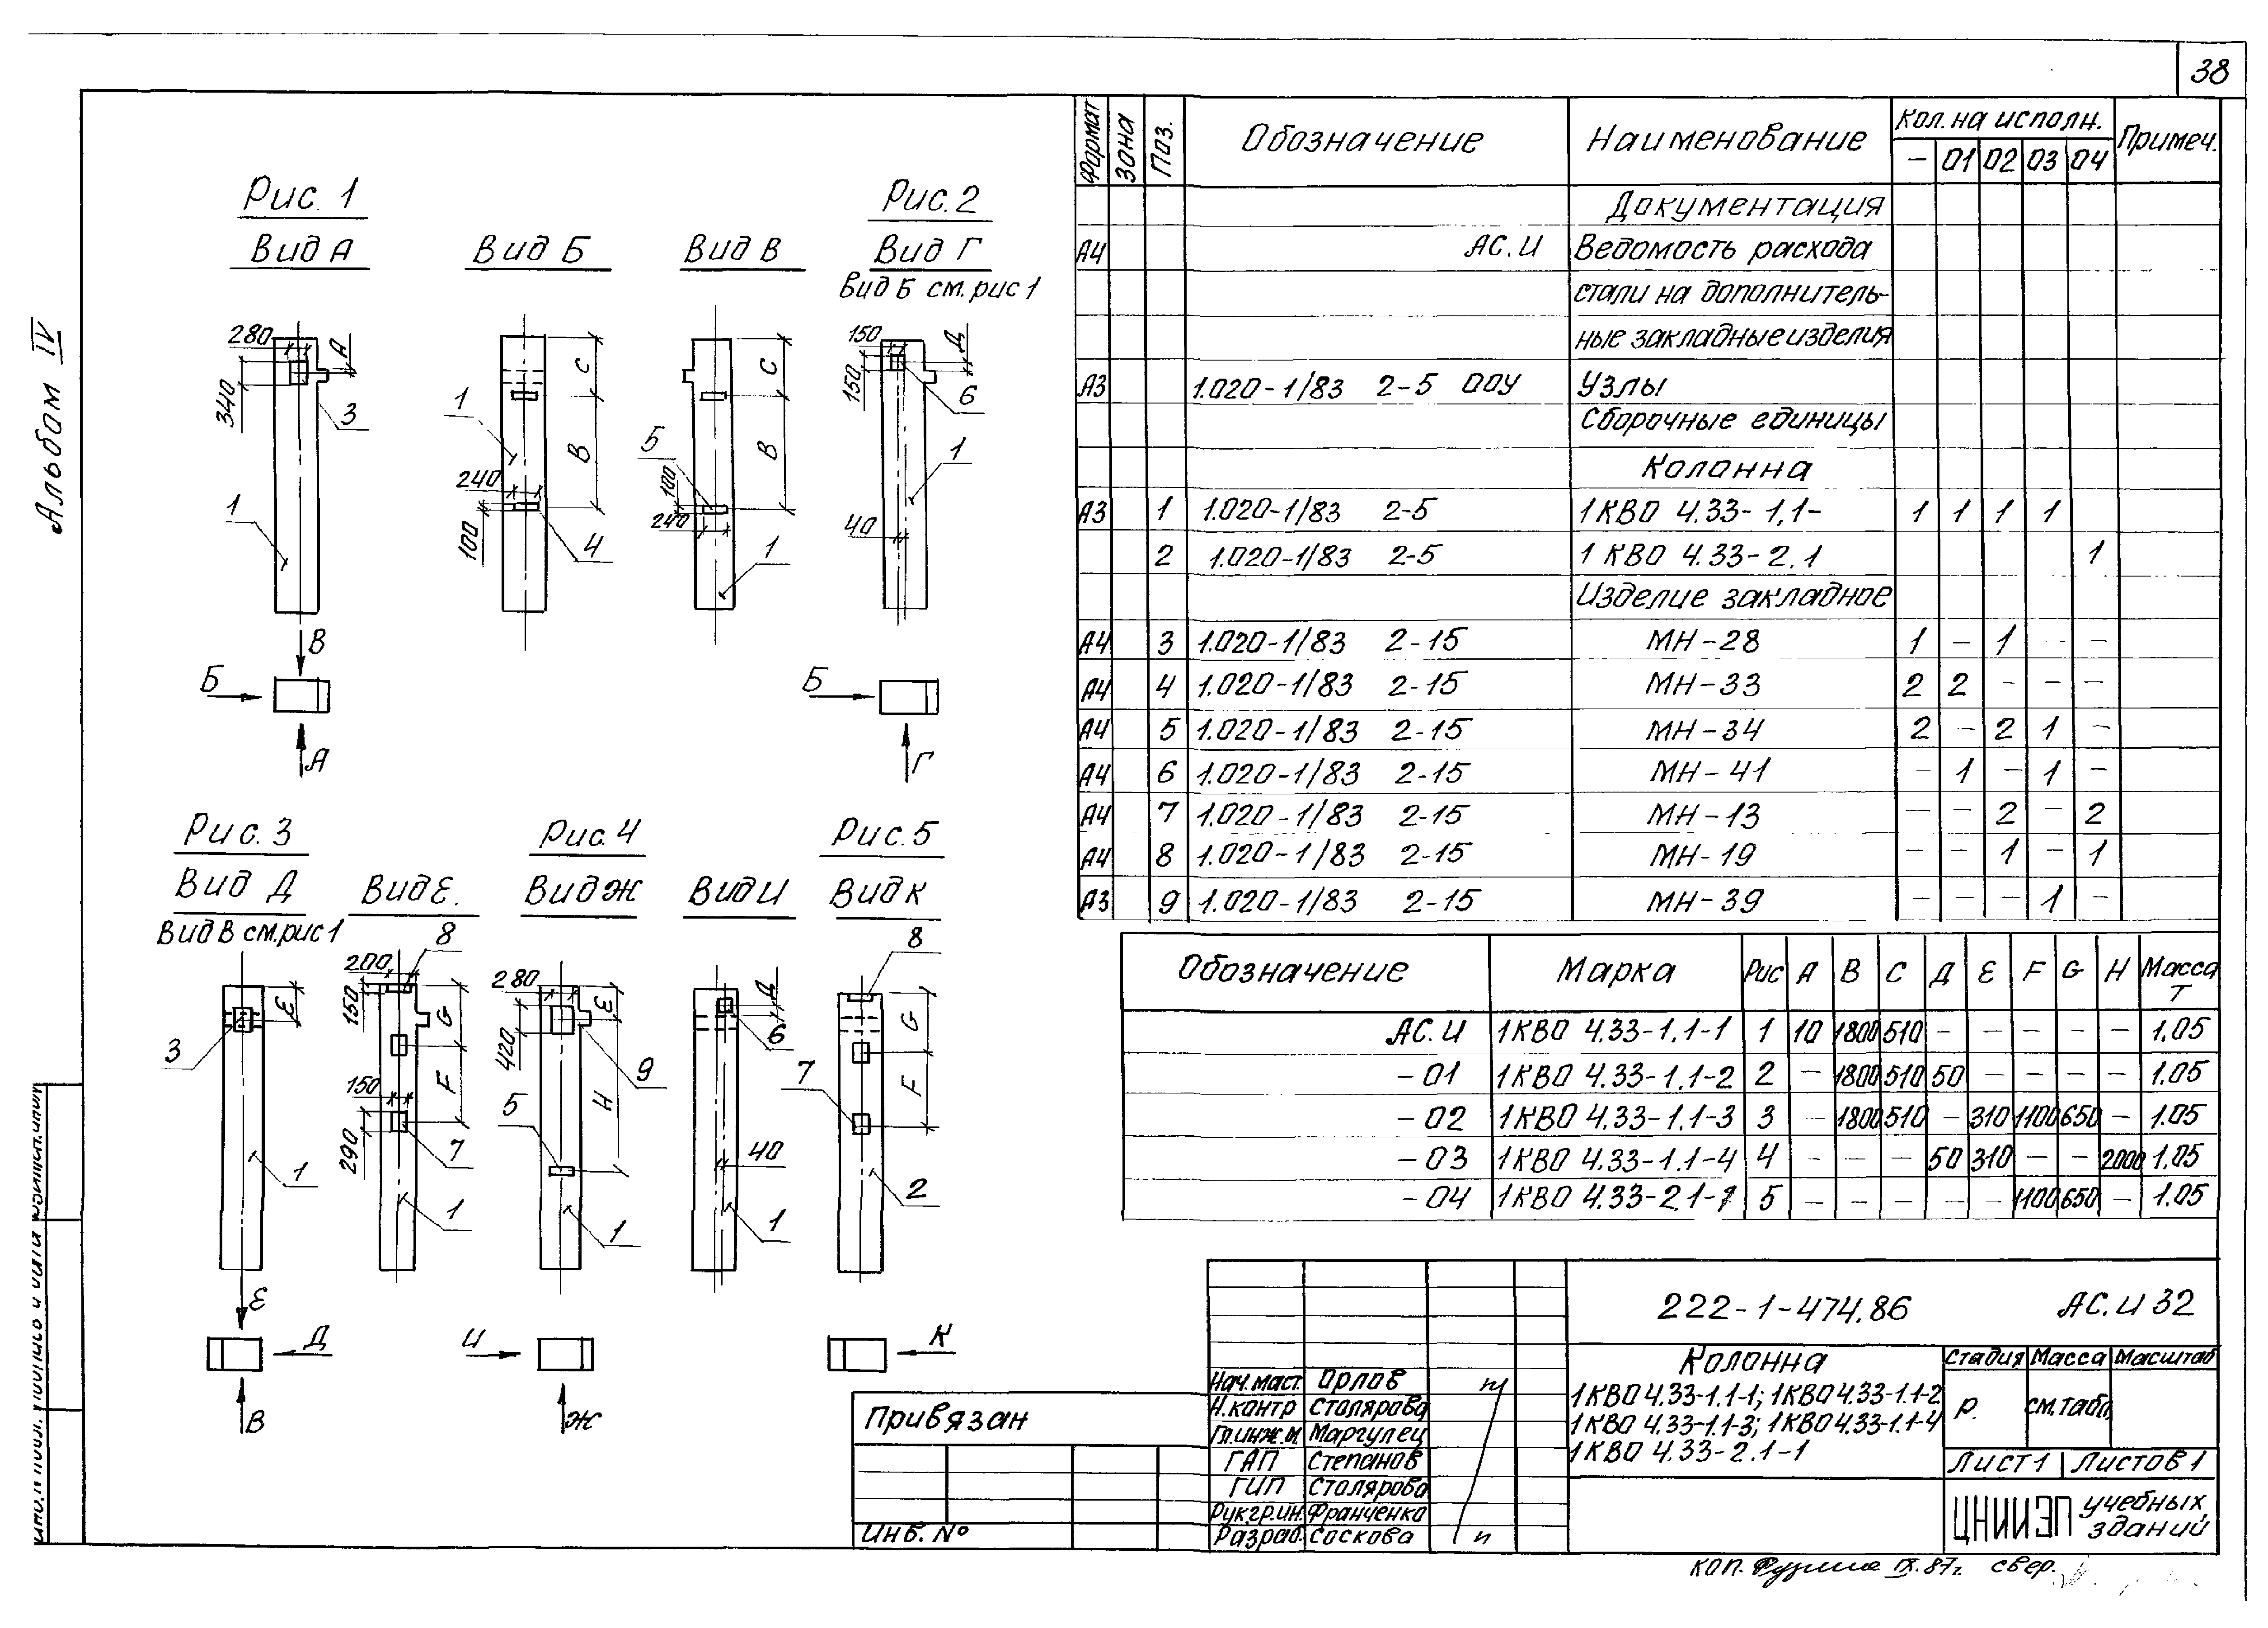 38
Альбом IV
Рис. 1
Вид А
Вид Б
Вид В
Рис. 2
Вид Г
Вид Б см. рис 1
280
А
340
3
1
С
В
1
240
100
4
С
В
5
100
240
1
150
Д
150
6
1
40
В
Б
А
Б
Г
Рис. 3
Вид Д
Вид В см. рис 1
Вид Е.
Рис. 4
Вид Ж
Вид И
Рис. 5
Вид К
Е
3
1
200
8
150
G
F
150
290
7
1
280
Е
420
9
Н
5
1
Д
6
40
1
8
G
7
F
2
Е
Д
В
И
Ж
К
Формат Зона Поз. Обозначение Наименование Кол. на исполн. Примеч.
– 01 02 03 04
Документация
А4 АС.И Ведомость расхода
стали на дополнитель-
ные закладные изделия
А3 1.020-1/83 2-5 00У Узлы
Сборочные единицы
Колонна
А3 1 1.020-1/83 2-5 1КВО 4.33-1.1- 1 1 1 1
2 1.020-1/83 2-5 1 КВО 4.33-2.1 1
Изделие закладное
А4 3 1.020-1/83 2-15 МН-28 1 – 1 – –
А4 4 1.020-1/83 2-15 МН-33 2 2 – – –
А4 5 1.020-1/83 2-15 МН-34 2 – 2 1 –
А4 6 1.020-1/83 2-15 МН-41 – 1 – 1 –
А4 7 1.020-1/83 2-15 МН-13 – – 2 – 2
А4 8 1.020-1/83 2-15 МН-19 – – 1 – 1
А3 9 1.020-1/83 2-15 МН-39 – – – 1 –
Обозначение Марка Рис А В С Д Е F G Н Масса т
АС.И 1КВО 4.33-1.1-1 1 10 1800 510 – – – – – 1.05
-01 1КВО 4.33-1.1-2 2 – 1800 510 50 – – – – 1.05
-02 1КВО 4.33-1.1-3 3 – 1800 510 – 310 1100 650 – 1.05
-03 1КВО 4.33-1.1-4 4 – – – 50 310 – – 2000 1.05
-04 1КВО 4.33-2.1-1 5 – – – – – 1100 650 – 1.05
222-1-474.86 АС.И 32
Колонна
1КВО 4.33-1.1-1; 1КВО 4.33-1.1-2
1КВО 4.33-1.1-3; 1КВО 4.33-1.1-4
1КВО 4.33-2.1-1
Стадия Масса Масштаб
Р. см. табл.
Лист 1 Листов 1
ЦНИИЭП учебных зданий
Нач. маст. Орлов
Н.контр Столярова
Гл.инж.м. Маргулец
ГАП Степанов
ГИП Столярова
Рук.гр.ин. Франченко
Разраб. Соскова
Привязан
Инв. №
коп. IX.87г. свер.